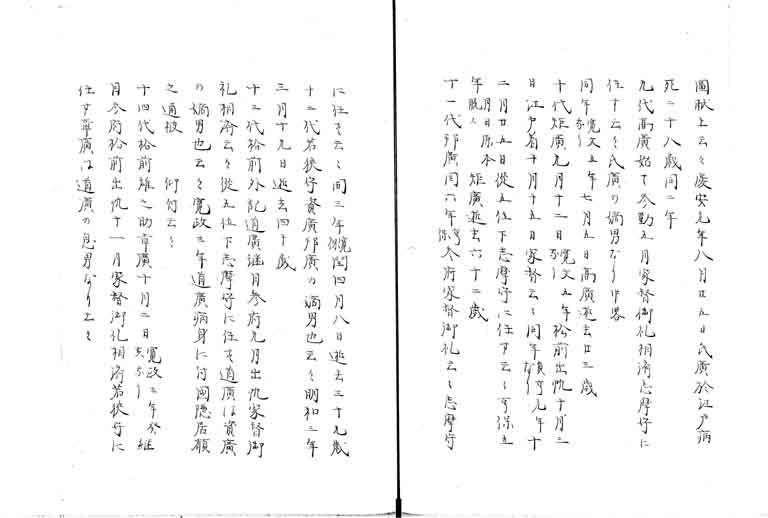 圖献上云々慶安元年八月廿五日氏廣於江戸病
死二十八歳同二年
九代高廣始て参勤五月家督御礼相済志摩守に
任す云々氏廣の嫡男なり中畧
同年寛文五年なり七月五日高廣逝去廿三歳
十代矩廣九月十二日寛文五年なり松前出帆十月二
日江戸着十月十五日家督云々同年貞享元年なり十
二月廿五日従五位下志摩守に任す云々享保五
年月日原本脱ス矩廣逝去六十二歳
十一代邦廣閏六年享保参府家督御礼云々志摩守
に任す云々同三年寛保閏四月八日逝去三十九歳
十二代若狭守資廣邦廣の嫡男也云々明和二年
三月十九日逝去四十歳
十三代松前外記道廣継月参府九月出帆家督御
礼相済云々従五位下志摩守に任す道廣は資廣
の嫡男也云々寛政三年道廣病身に付内隠居願
之通被 仰付云々
十四代松前雄之助章廣十月二日寛政三年亥なり発継
月参府松前出帆十一月家督御礼相済若狭守に
任す章廣は道廣の息男なり云々